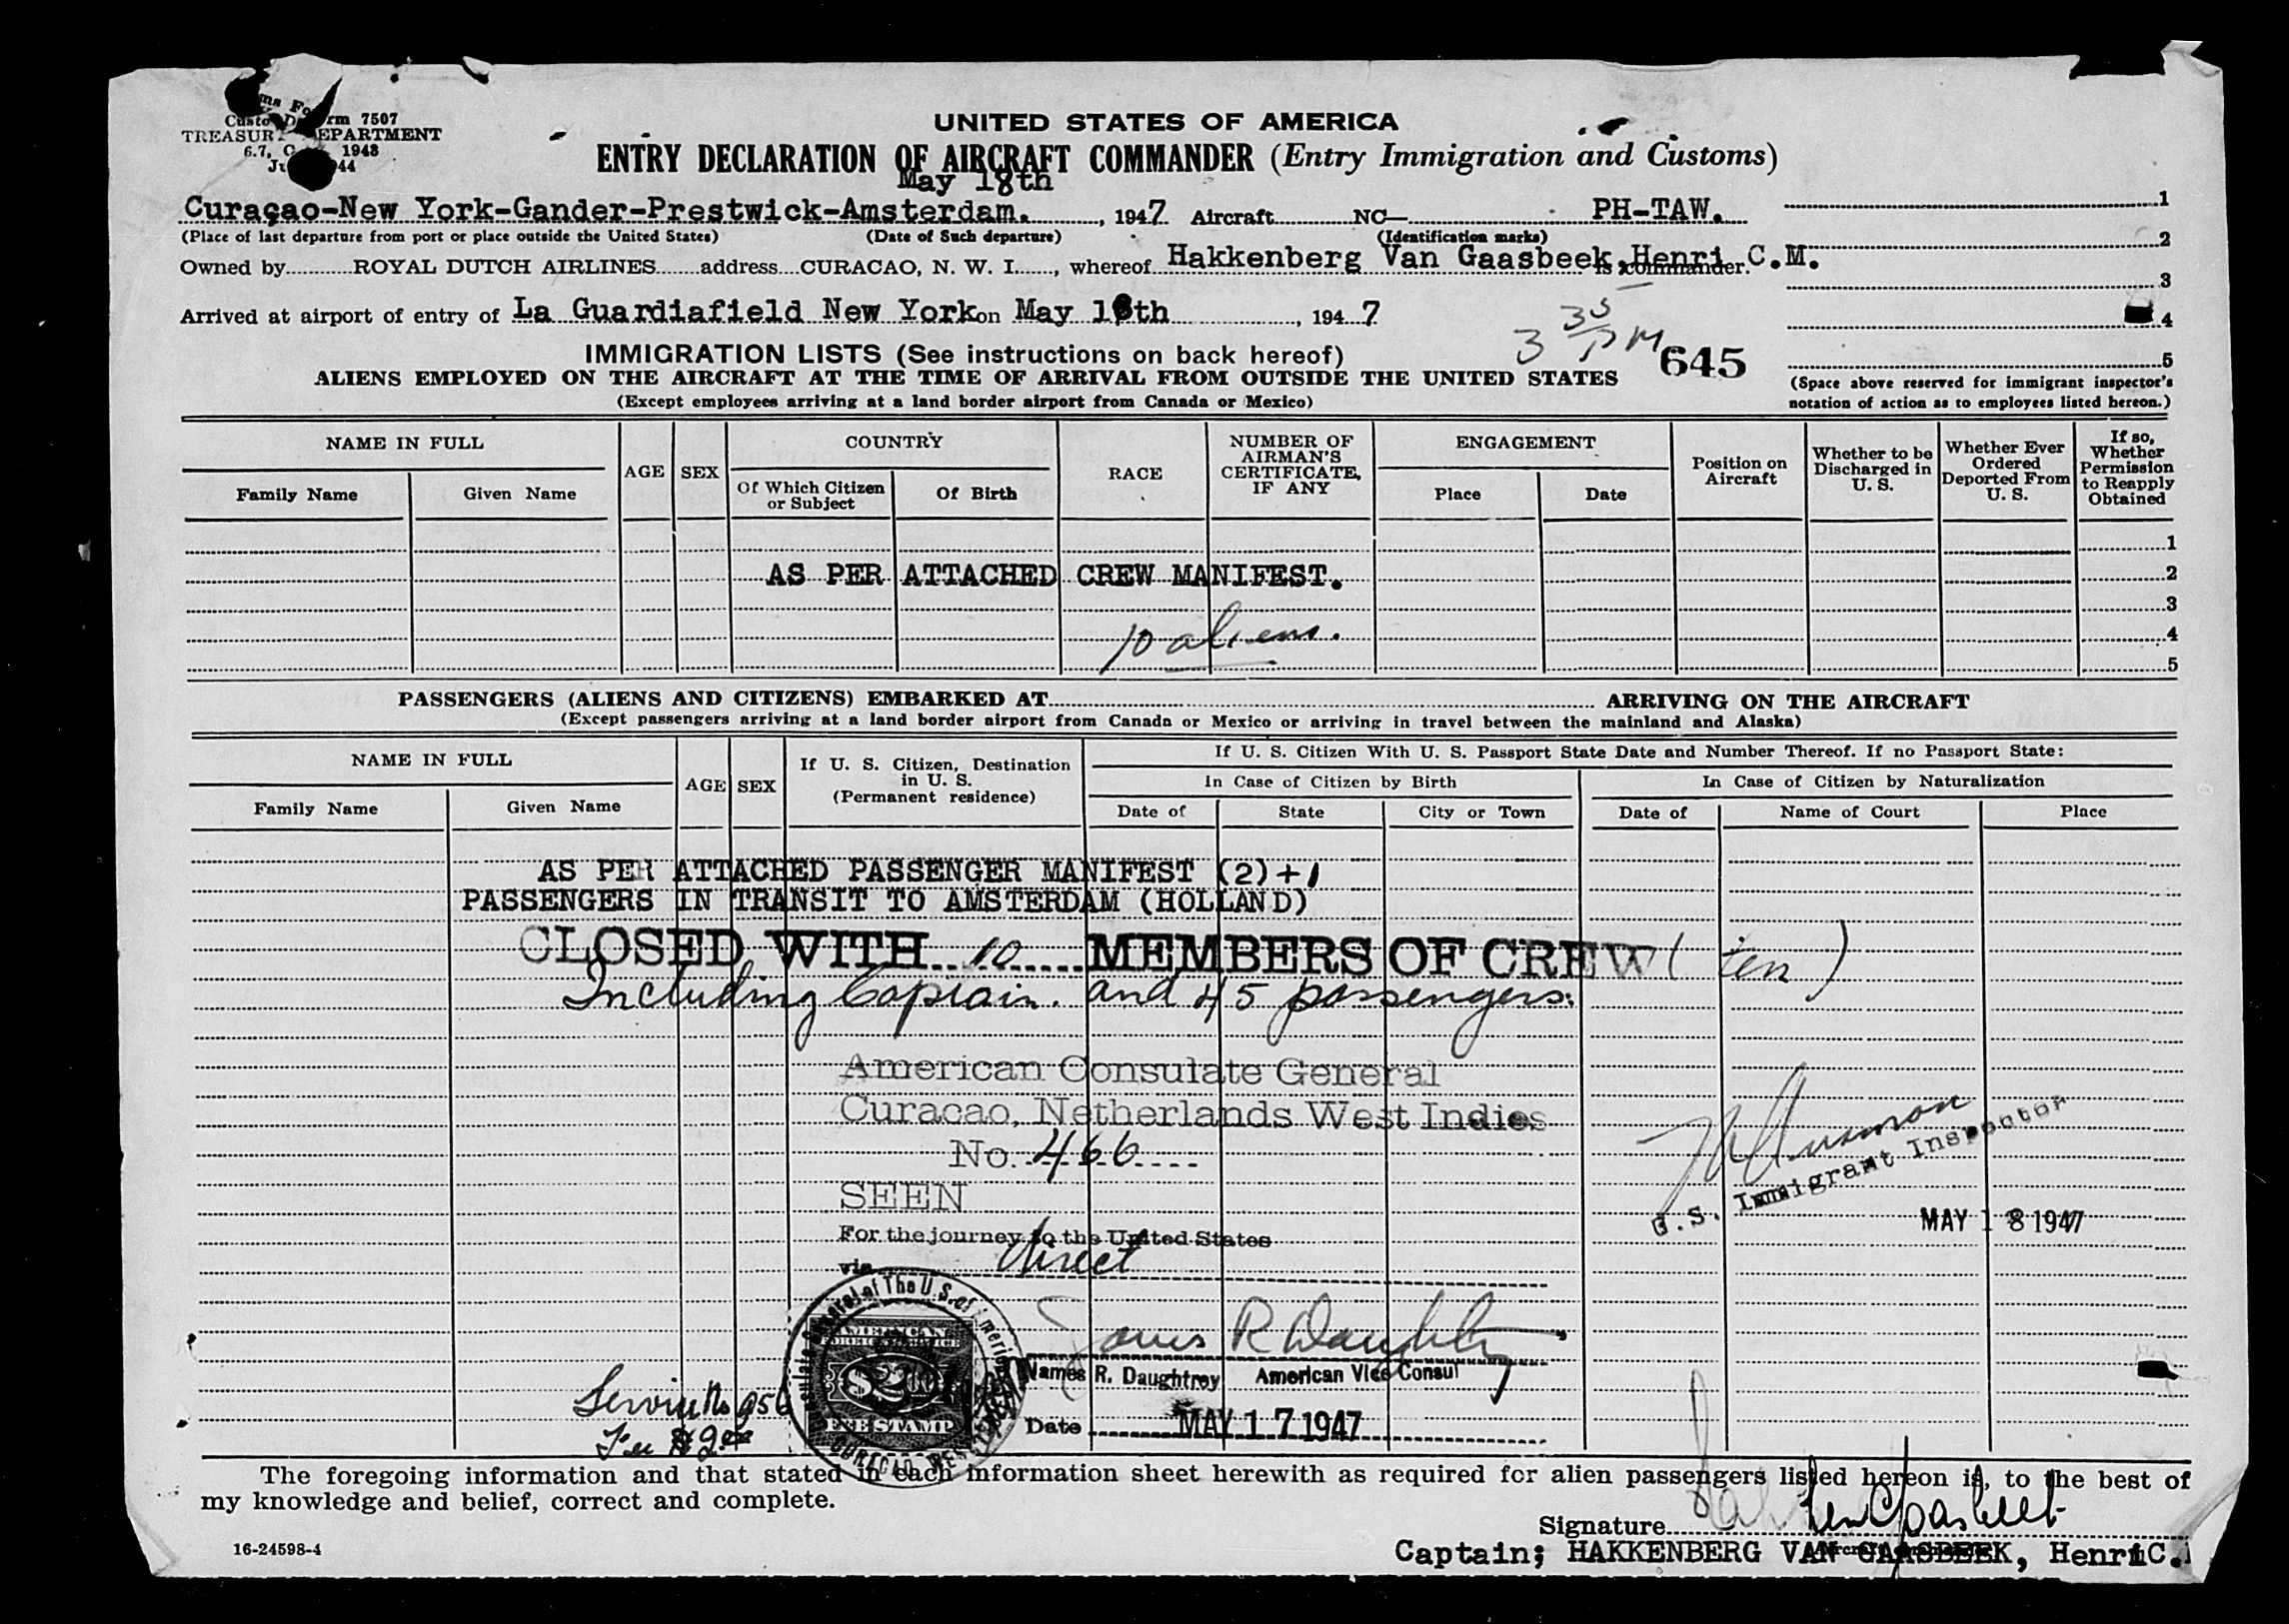 Customs Form 7507
TREASURY DEPARTMENT
UNITED STATES OF AMERICA
ENTRY DECLARATION OF AIRCRAFT COMMANDER (Entry Immigration and Customs)
May 18th
Curaçao-New York-Gander-Prestwick-Amsterdam. , 1947 Aircraft NC— PH-TAW. 1
(Place of last departure from port or place outside the United States) (Date of Such departure) (Identification marks) 2
Owned by ROYAL DUTCH AIRLINES address CURACAO, N. W. I. , whereof Hakkenberg Van Gaasbeek, Henri C.M. is commander.
3
Arrived at airport of entry of La Guardiafield New York on May 18th , 1947 4
3 35 PM 645
IMMIGRATION LISTS (See instructions on back hereof) 5
ALIENS EMPLOYED ON THE AIRCRAFT AT THE TIME OF ARRIVAL FROM OUTSIDE THE UNITED STATES
(Space above reserved for immigrant inspector's
(Except employees arriving at a land border airport from Canada or Mexico) notation of action as to employees listed hereon.)
NAME IN FULL AGE SEX COUNTRY RACE NUMBER OF AIRMAN'S CERTIFICATE, IF ANY ENGAGEMENT Position on Aircraft Whether to be Discharged in U. S. Whether Ever Ordered Deported From U. S. If so, Whether Permission to Reapply Obtained
Family Name Given Name Of Which Citizen or Subject Of Birth Place Date
1
AS PER ATTACHED CREW MANIFEST. 2
3
10 aliens. 4
5
PASSENGERS (ALIENS AND CITIZENS) EMBARKED AT ARRIVING ON THE AIRCRAFT
(Except passengers arriving at a land border airport from Canada or Mexico or arriving in travel between the mainland and Alaska)
NAME IN FULL AGE SEX If U. S. Citizen, Destination in U. S. (Permanent residence) If U. S. Citizen With U. S. Passport State Date and Number Thereof. If no Passport State:
In Case of Citizen by Birth In Case of Citizen by Naturalization
Family Name Given Name Date of State City or Town Date of Name of Court Place
AS PER ATTACHED PASSENGER MANIFEST (2)+1
PASSENGERS IN TRANSIT TO AMSTERDAM (HOLLAND)
CLOSED WITH 10 MEMBERS OF CREW (ten)
Including Captain. and 45 passengers.
American Consulate General
Curacao, Netherlands West Indies
No. 466
SEEN
For the journey to the United States
via direct
U.S. Immigrant Inspector
MAY 18 1947
AMERICAN
FOREIGN SERVICE
$2
FEE STAMP
James R Daughtrey
James R. Daughtrey American Vice Consul
Service No 956
Fee $2.00
Date MAY 17 1947
The foregoing information and that stated in each information sheet herewith as required for alien passengers listed hereon is, to the best of
my knowledge and belief, correct and complete.
Signature
16-24598-4
Captain; HAKKENBERG VAN GAASBEEK, Henri C.